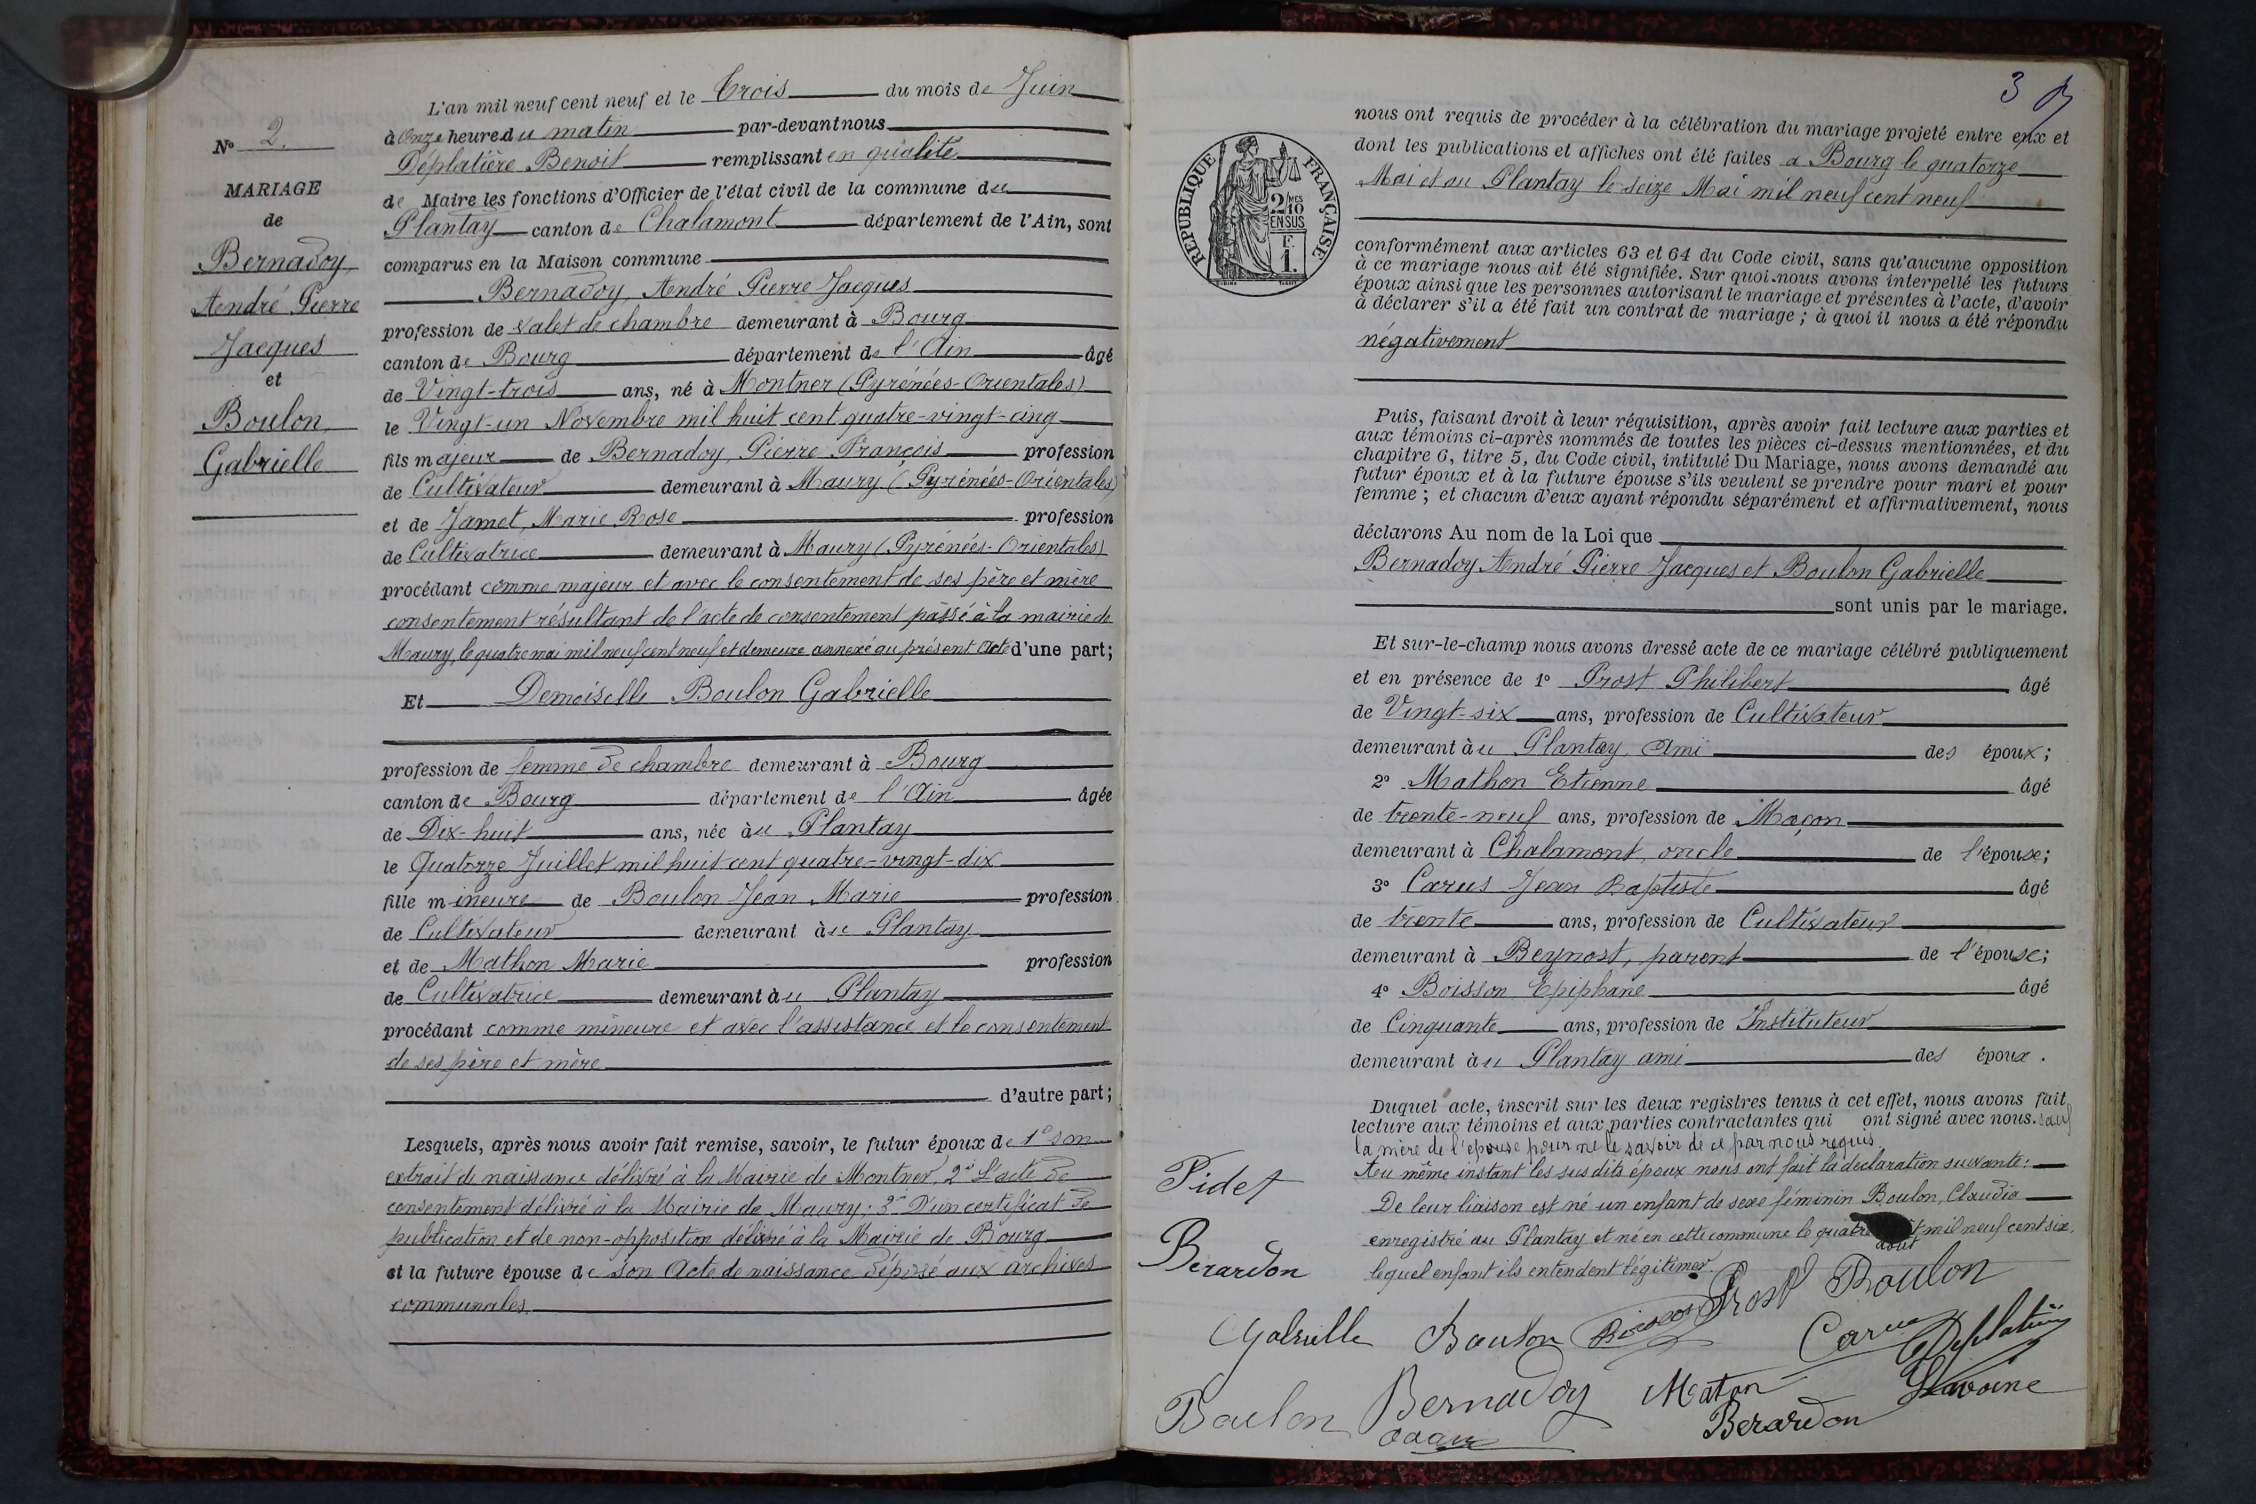 L'an mil neuf cent neuf et le Trois du mois de Juin
à Onze heures du matin par-devant nous
Déplatière Benoit remplissant en qualité
de Maire les fonctions d'Officier de l'état civil de la commune du
Plantay canton de Chalamont département de l'Ain, sont
comparus en la Maison commune
Bernadoy, André Pierre Jacques
profession de valet de chambre demeurant à Bourg
canton de Bourg département de l'Ain âgé
de Vingt-trois ans, né à Montner (Pyrénées-Orientales)
le Vingt-un Novembre mil huit cent quatre-vingt-cinq
fils majeur de Bernadoy, Pierre François profession
de Cultivateur demeurant à Maury (Pyrénées-Orientales)
et de Jamet, Marie Rose profession
de Cultivatrice demeurant à Maury (Pyrénées-Orientales)
procédant comme majeur et avec le consentement de ses père et mère
consentement résultant de l'acte de consentement passé à la mairie de
Maury, le quatre mai mil neuf cent neuf et demeure annexé au présent acte d'une part;
Et Demoiselle Boulon Gabrielle
profession de femme de chambre demeurant à Bourg
canton de Bourg département de l'Ain âgée
de Dix-huit ans, née au Plantay
le Quatorze Juillet mil huit cent quatre-vingt-dix
fille mineure de Boulon Jean Marie profession
de Cultivateur demeurant au Plantay
et de Mathon Marie profession
de Cultivatrice demeurant au Plantay
procédant comme mineure et avec l'assistance et le consentement
de ses père et mère
d'autre part;
Lesquels, après nous avoir fait remise, savoir, le futur époux de 1° son
extrait de naissance délivré à la Mairie de Montner, 2° L'acte de
consentement délivré à la Mairie de Maury; 3° D'un certificat de
publication et de non-opposition délivré à la Mairie de Bourg
et la future épouse de son Acte de naissance déposé aux archives
communales.
N° 2.
MARIAGE
de
Bernadoy,
André Pierre
Jacques
et
Boulon,
Gabrielle
3
nous ont requis de procéder à la célébration du mariage projeté entre eux et
dont les publications et affiches ont été faites à Bourg le quatorze
Mai et au Plantay le seize Mai mil neuf cent neuf
conformément aux articles 63 et 64 du Code civil, sans qu'aucune opposition
à ce mariage nous ait été signifiée. Sur quoi nous avons interpellé les futurs
époux ainsi que les personnes autorisant le mariage et présentes à l'acte, d'avoir
à déclarer s'il a été fait un contrat de mariage; à quoi il nous a été répondu
négativement
Puis, faisant droit à leur réquisition, après avoir fait lecture aux parties et
aux témoins ci-après nommés de toutes les pièces ci-dessus mentionnées, et du
chapitre 6, titre 5, du Code civil, intitulé Du Mariage, nous avons demandé au
futur époux et à la future épouse s'ils veulent se prendre pour mari et pour
femme; et chacun d'eux ayant répondu séparément et affirmativement, nous
déclarons Au nom de la Loi que
Bernadoy André Pierre Jacques et Boulon Gabrielle
sont unis par le mariage.
Et sur-le-champ nous avons dressé acte de ce mariage célébré publiquement
et en présence de 1° Prost Philibert âgé
de Vingt-six ans, profession de Cultivateur
demeurant au Plantay, Ami des époux;
2° Mathon Etienne âgé
de trente-neuf ans, profession de Maçon
demeurant à Chalamont, oncle de l'épouse;
3° Carus Jean Baptiste âgé
de trente ans, profession de Cultivateur
demeurant à Beynost, parent de l'épouse;
4° Boisson Epiphane âgé
de Cinquante ans, profession de Instituteur
demeurant au Plantay ami des époux.
Duquel acte, inscrit sur les deux registres tenus à cet effet, nous avons fait
lecture aux témoins et aux parties contractantes qui ont signé avec nous. sauf
la mère de l'épouse pour ne le savoir de ce par nous requis.
Au même instant les susdits époux nous ont fait la déclaration suivante:
De leur liaison est né un enfant de sexe féminin Boulon, Claudia
enregistré au Plantay et né en cette commune le quatre mil neuf cent six,
août
lequel enfant ils entendent légitimer.
RÉPUBLIQUE FRANÇAISE
2/10MES
EN SUS
F.
1.
Pidet
Berardon
Prost Boulon
Gabrielle Boulon Boisson
Carus Déplatière
Boulon Bernadoy Maton
Berardon